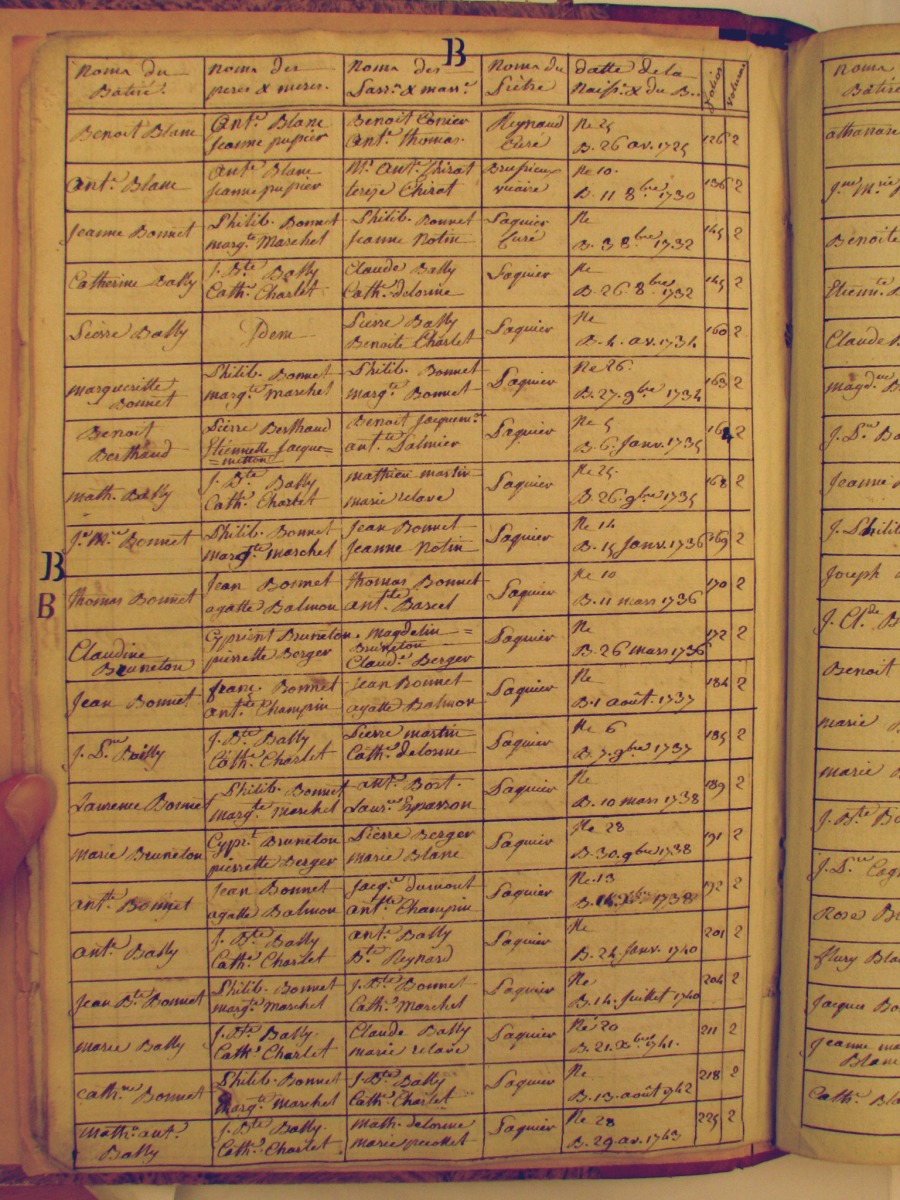 B
Noms du Bâtisé.
Noms des peres & meres.
Noms des Parr.ns & marr.s
Noms du Prêtre
datte de la Naiss.e & du B.
folios
volume
Benoit Blanc
Ant.e Blanc
Jeanne pupier
Benoit Corier
Ant.e thomas.
Reynaud
Curé
Ne 25
B. 26 av. 1725
126
2
Ant.e Blanc
Ant.e Blanc
Jeanne pupier
Mr. Ant.e Chirat
tereze Chirat
Brussieux
vicaire
Ne 10.
B. 11 8bre 1730
136
2
Jeanne Bonnet
Philib. Bonnet
marg.te Marchet
Philib. Bonnet
Jeanne Notin
Paquier
Curé
Ne
B. 3 8bre 1732
145
2
Catherine Bally
J. Bte Bally
Cath.e Charlet
Claude Bally
Cath.e delorme
Paquier
Ne
B. 26. 8bre 1732
145
2
Pierre Bally
Idem
Pierre Bally
Benoite Charlet
Paquier
Ne
B. 4. av. 1734
160
2
margueritte
Bonnet
Philib. Bonnet
marg.te marchet
Philib. Bonnet
marg.te Bonnet
Paquier
Ne 26
B. 27. 9bre 1734
163
2
Benoit
Berthaud
Pierre Berthaud
Etiennette Jacque=
=metton
Benoit
ant.te Palmier
Paquier
Ne 5
B. 6. Janv. 1735
164
2
math. Bally
J. Bte Bally
Cath.e Charlet
mathieu martin
marie relave
Paquier
Ne 25.
B. 26. 9bre 1735
168
2
J.e M.ie Bonnet
Philib. Bonnet
marg.te marchet
Jean Bonnet
Jeanne Notin
Paquier
Ne 14
B. 15 Janv. 1736
169
2
B
B
Thomas Bonnet
Jean Bonnet
agatte Balmon
thomas Bonnet
ant.te Barcel
Paquier
Ne 10
B. 11 mars 1736
170
2
Claudine
Bruneton
Cyprient Bruneton.
pierrette Berger
magdelin=
Bruneton
Claud.e Berger
Paquier
Ne
B. 26 mars 1736
172
2
Jean Bonnet
franç. Bonnet
ant.te Champin
Jean Bonnet
agatte Balmon
Paquier
Ne
B. 1 août. 1737
184
2
J. P.re Bally
J. Bte Bally
Cath.e Charlet
Pierre martin
Cath.e delorme
Paquier
Ne 6
B. 7. 9bre 1737
185
2
Laurence Bonnet
Philib. Bonnet
marg.te marchet
ant.e Bort.
Laur.ce
Paquier
Ne
B. 10 mars 1738
189
2
marie Bruneton
Cypr.t Bruneton
pierrette Berger
Pierre Berger
marie Blanc
Paquier
Ne 28
B. 30. 9bre 1738
191
2
ant.te Bonnet
Jean Bonnet
agatte Balmon
Jacq.e dumont
ant.te Champin
Paquier
Ne. 13
B. Xbre 1738
192
2
ant.e Bally
J. Bte Bally
Cath.e Charlet
ant.e Bally
B.te Reynard
Paquier
Ne
B. 24. Janv. 1740
201
2
Jean Bte Bonnet
Philib. Bonnet
marg.te Marchet
J. Bte Bonnet
Cath.e Marchet
Paquier
Ne
B. 14. Juillet 1740
204
2
marie Bally
J. Bte Bally.
Cath.e Charlet
Claude Bally
marie relave
Paquier
Ne 20
B. 21. Xbre 1741.
211
2
cath.ne Bonnet
Philib. Bonnet
marg.te marchet
J. Bte Bally
Cath.e Charlet
Paquier
Ne
B. 13. août 1742
218
2
Math. ant.e
Bally
J. Bte Bally.
Cath.e Charlet
Math. delorme
marie
Paquier
Ne 28
B. 29 av. 1743
225
2
Noms
Bâtisé
athanase
J.ne M.rie
Benoite
Etienn.te B
Claude B
magd.ne B
J. P.re Ba
Jeanne
J. Philib
Joseph
J. Cl.de B
Benoit
marie B
marie
J. Bte Bo
J. P.re
Rose Bl
fleury Bla
Jacques Bo
Jeanne ma
Blanc
Cath.e Bla